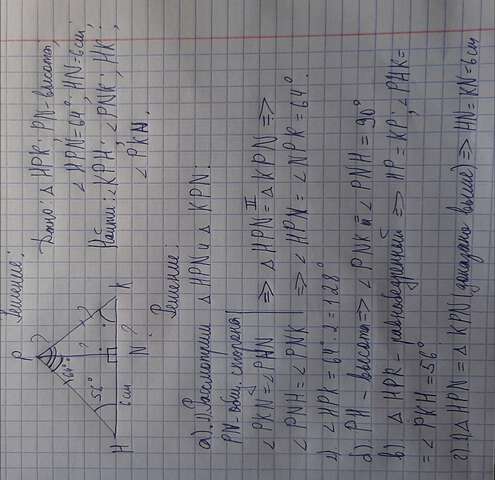 Решение:
P
64°
56°
6 см
?
H
N
K
Дано: △ HPK; PN-высота;
∠HPN=64°; HN=6см
Найти: ∠KPH; ∠PNK; HK;
∠PKN.
Решение:
а) 1) Рассмотрим △ HPN и △ KPN:
PN-общ. сторона
∠PKN = ∠PHN => △ HPN = △ KPN =>
II
∠PNH = ∠PNK => ∠HPN = ∠NPK = 64°.
2) ∠HPK = 64°·2 = 128°
б) PH - высота => ∠PNK и ∠PNH = 90°
в) △ HPK - равнобедренный => HP = KP; ∠PHK =
= ∠PKH = 56°
г) 1) △ HPN = △ KPN (доказано выше) => HN = KN = 6см